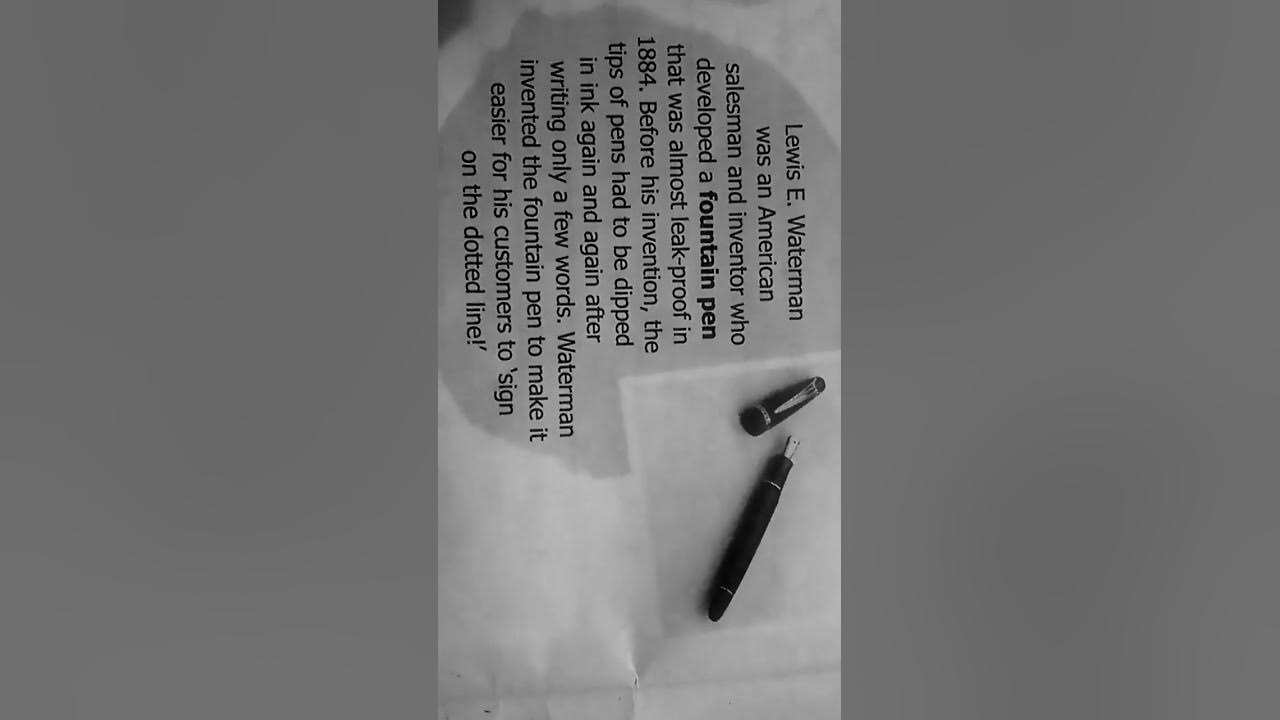 Lewis E. Waterman
was an American
salesman and inventor who
developed a fountain pen
that was almost leak-proof in
1884. Before his invention, the
tips of pens had to be dipped
in ink again and again after
writing only a few words. Waterman
invented the fountain pen to make it
easier for his customers to 'sign
on the dotted line!'